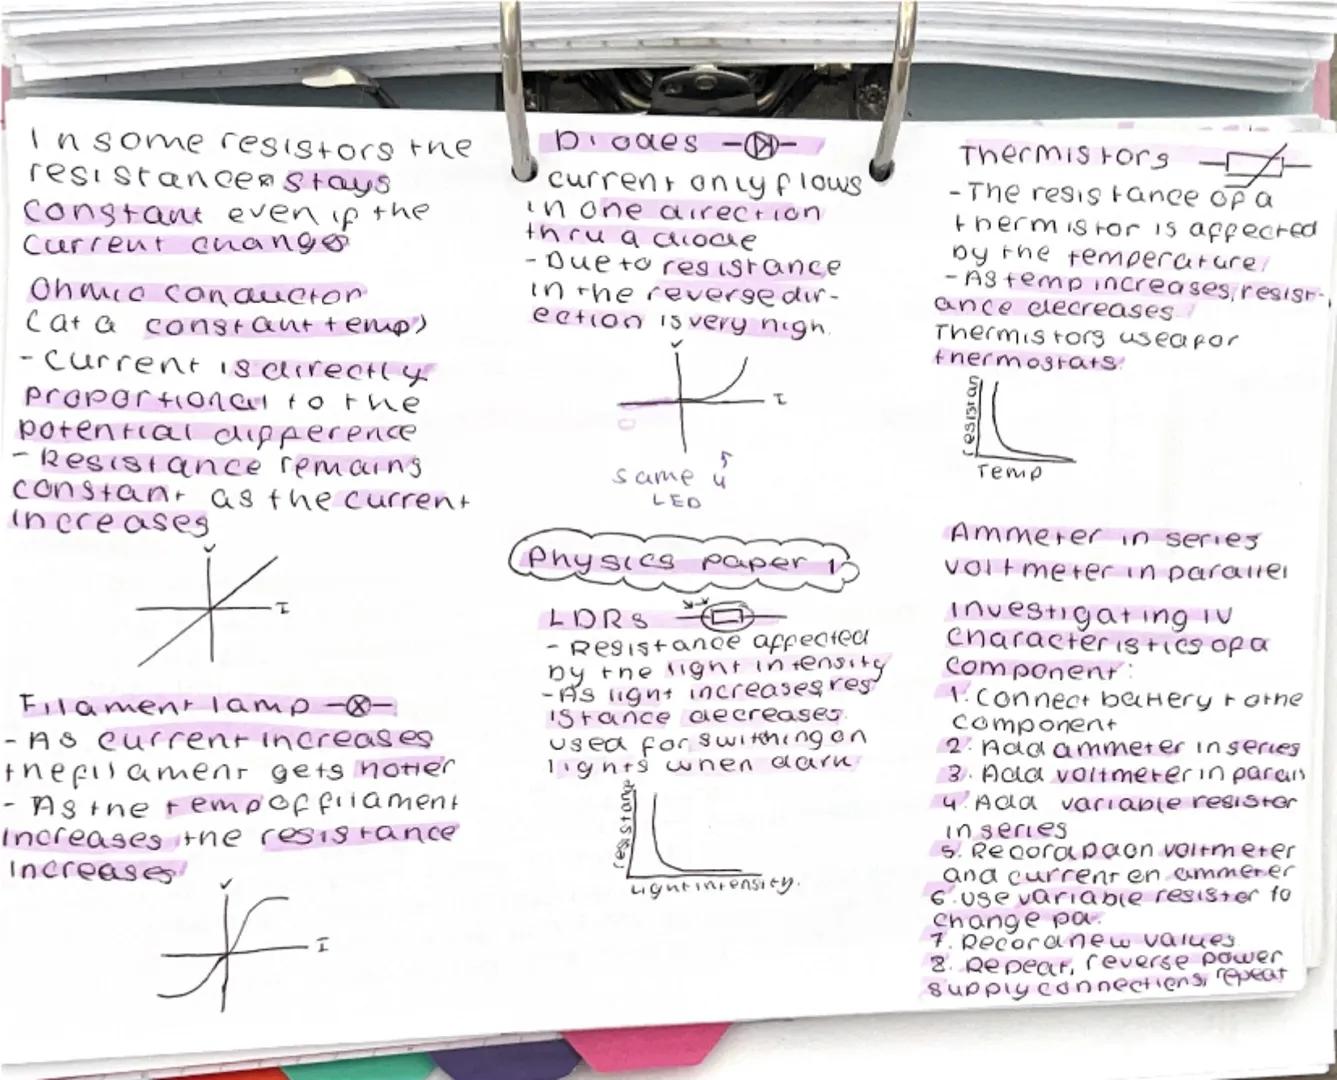 In some resistors the
resistance stays
constant even if the
current changes
Ohmic conductor
(at a constant temp)
- Current is directly
proportional to the
potential difference
- Resistance remains
constant as the current
increases
V
I
Filament lamp
- As current increases
the filament gets hotter
- As the temp of filament
increases, the resistance
increases
V
I
Diodes
current only flows
in one direction
thru a diode
- Due to resistance
in the reverse dir-
ection is very high.
V
I
same 4
LED
Physics paper 1
LDRs
- Resistance affected
by the light intensity
- As light increases, res
istance decreases.
used for switching on
lights when dark
resistance
Light intensity.
Thermistors
- The resistance of a
thermistor is affected
by the temperature
- As temp increases, resist-
ance decreases.
Thermistors used for
thermostats.
resistan
Temp
Ammeter in series
voltmeter in parallel
Investigating IV
characteristics of a
component:
1. Connect battery to the
component
2. Add ammeter in series
3. Add voltmeter in paralls
4. Add variable resister
in series
5. Record pd on voltmeter
and current en ammeter
6. use variable resister to
change pd.
7. Record new values
8. Repeat, reverse power
supply connections, repeat